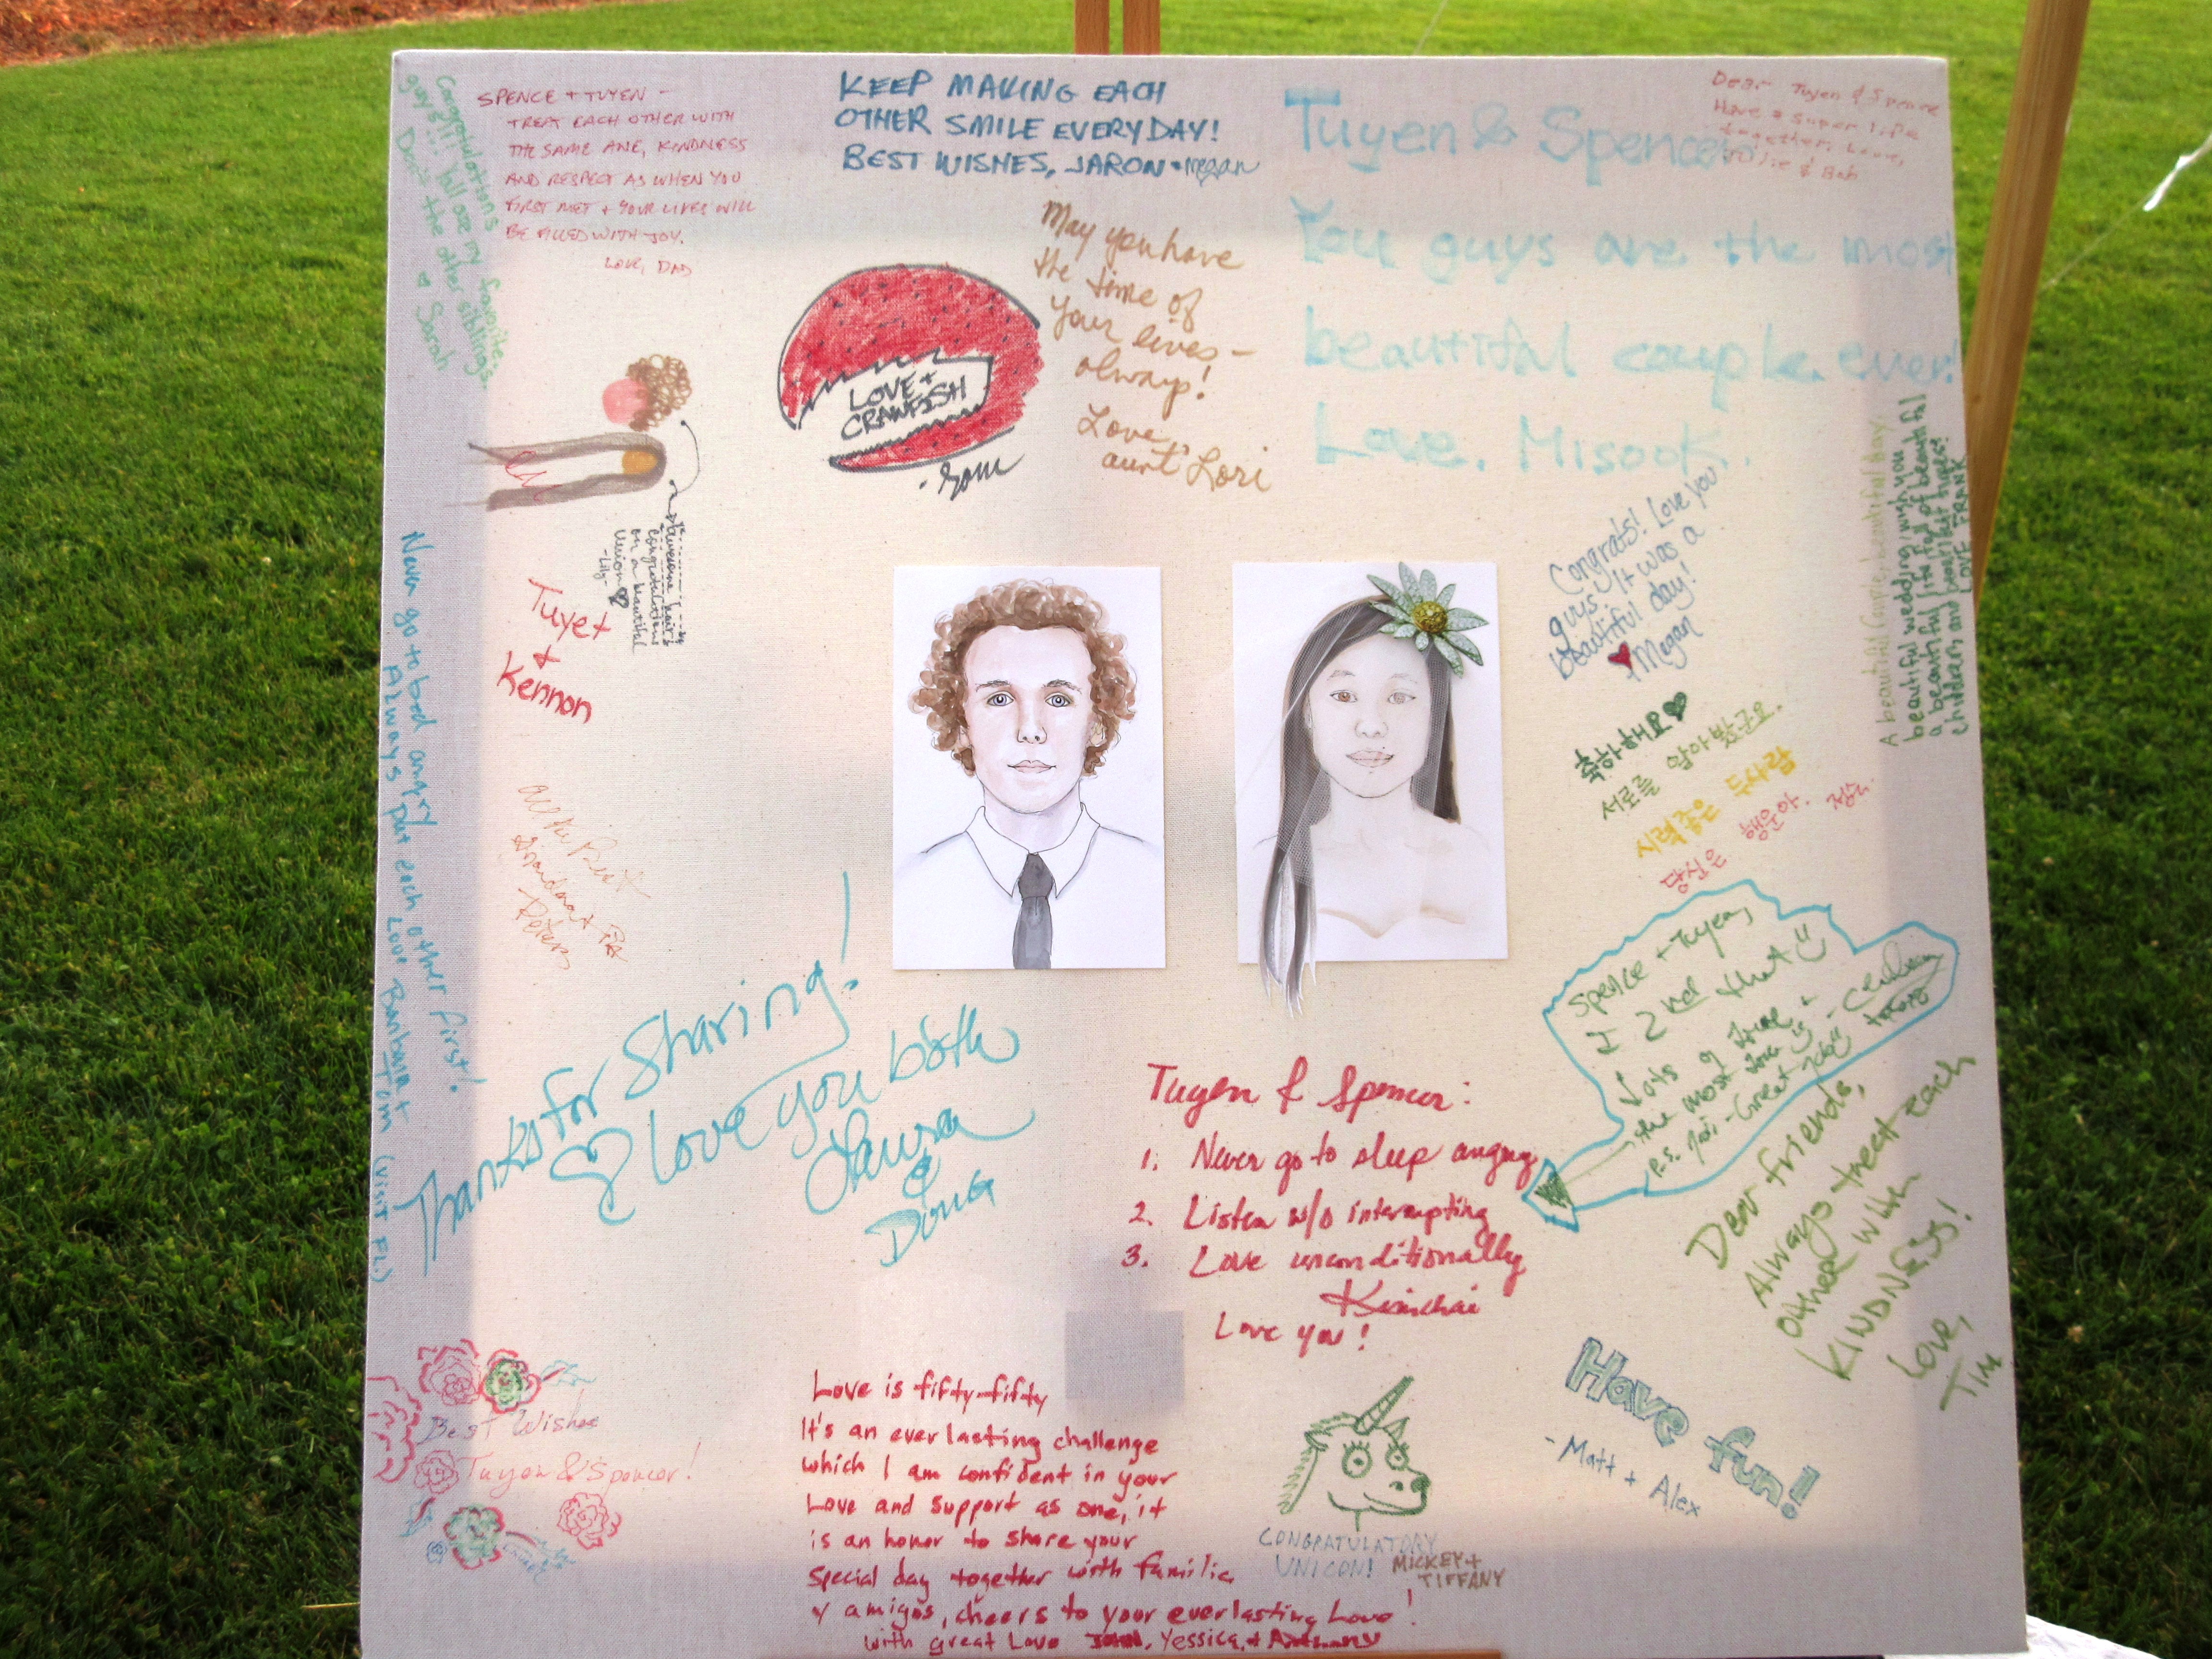 Congratulations
guys!!! Y'all are my favorites.
Don't tell the other siblings.
Sarah
SPENCE + TUYEN -
TREAT EACH OTHER WITH
THE SAME AWE, KINDNESS
AND RESPECT AS WHEN YOU
FIRST MET + YOUR LIVES WILL
BE FILLED WITH JOY.
LOVE, DAD
KEEP MAKING EACH
OTHER SMILE EVERYDAY!
BEST WISHES, JARON + megan
Tuyen & Spencer
You guys are the most
beautiful couple ever!
Love, Misook.
Dear Tuyen & Spence
Have a super life
together. Love,
& Bob
LOVE +
CRAWFISH
May you have
the time of
your lives -
always!
Love,
aunt Lori
Awesome hair!
congratulations
on a beautiful
union
-Lily-
Tuyet
+
Kennon
Congrats! Love you
guys! It was a
beautiful day!
Megan
A beautiful couple, beautiful day,
beautiful wedding, wish you
a beautiful life full of beautiful
children and beautiful things!
LOVE FRANK
축하해요
서로를 알아봤군요.
시력좋은 두사람
당신은 행운아.
Never go to bed angry
Always put each other first!
Love Banhva + Tim (VISIT FL)
All the Best
Grandma + Pa
Peters
Thanks for Sharing!
love you both
Laura
&
Doug
Spence + Tuyen,
I 2nd that
Lots of love +
the most love is
P.S. Tori - Great job!!
Tuyen & Spencer:
1. Never go to sleep angry
2. Listen w/o interrupting
3. Love unconditionally
Kimchai
Love you!
Dear friends,
Always treat each
other with
KINDNESS!
Love,
TIM
Best Wishes
Tuyen & Spencer!
Love is fifty-fifty
It's an everlasting challenge
which I am confident in your
Love and support as one, it
is an honor to share your
special day together with familia
y amigos, cheers to your everlasting Love!
with great Love John, Yessica, + Anthony
CONGRATULATORY
UNICON!
MICKEY +
TIFFANY
Have fun!
- Matt + Alex